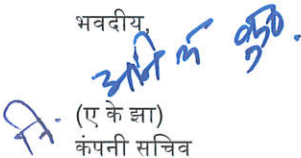 भवदीय,
(ए के झा)
कंपनी सचिव